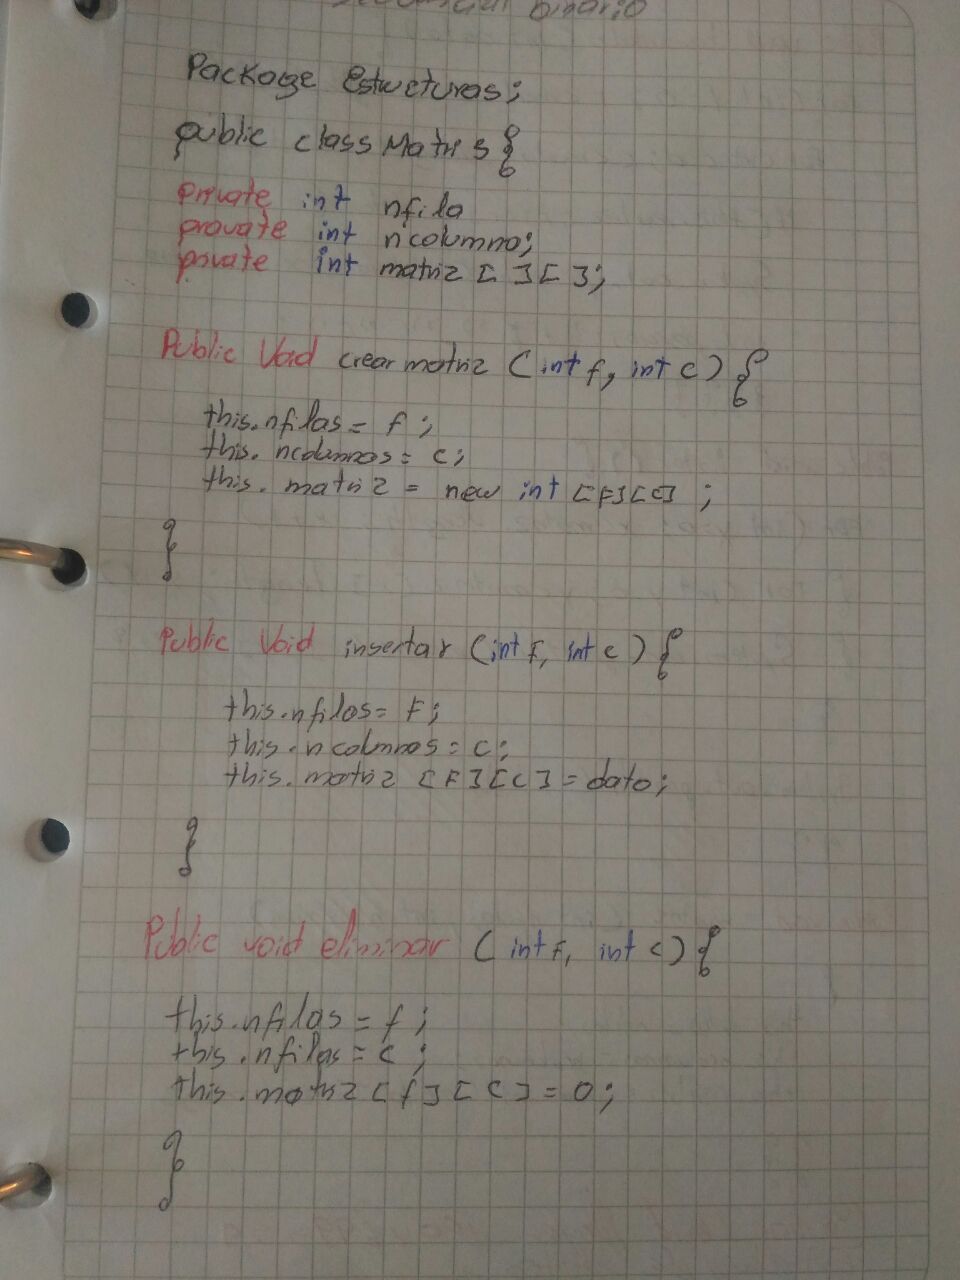 secuencial binario
Package Estructuras;
public class Matris {
private int nfila
pravate int ncolumno;
private int matriz [ ][ ];
Public Void crear matriz (int f, int c) {
this.nfilas = f ;
this. ncolumnos = c;
this. matriz = new int [F][C] ;
}
Public Void insertar (int F, int c) {
this.nfilas= F;
this.ncolmnos = c;
this. matriz [F][C] = dato;
}
Public void eliminar ( int F, int c) {
this.nfilas = f ;
this.nfilas = c ;
this.matriz [f][C] = 0;
}